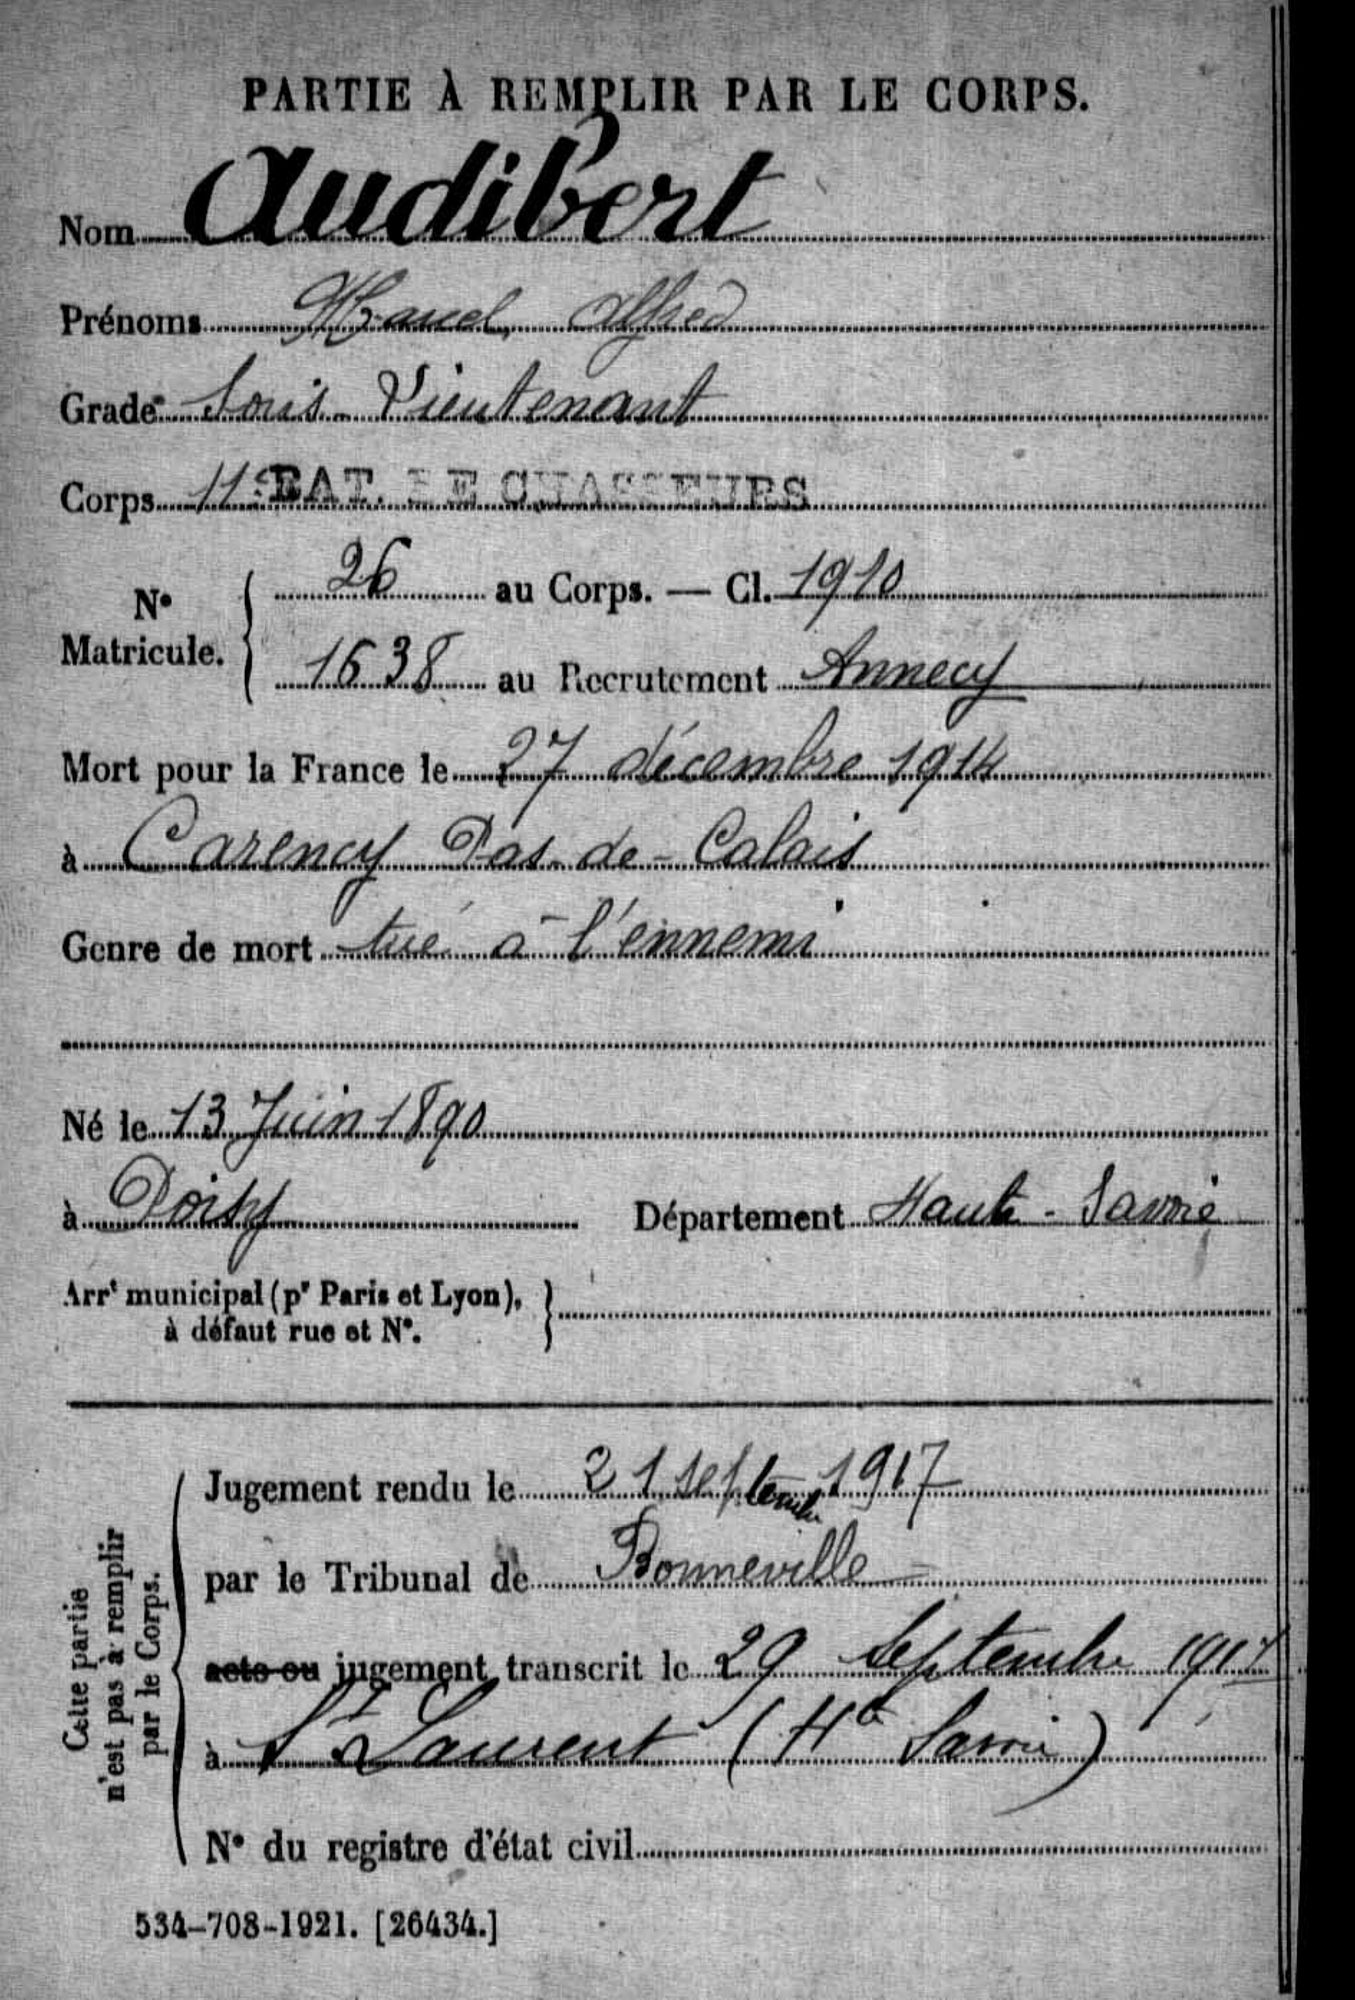 PARTIE À REMPLIR PAR LE CORPS.
Nom Audibert
Prénoms Marcel Alfred
Grade Sous-Lieutenant
Corps 11e BAT. DE CHASSEURS
N° Matricule. 26 au Corps. — Cl. 1910
1638 au Recrutement Annecy
Mort pour la France le 27 décembre 1914
à Carency Pas-de-Calais
Genre de mort tué à l'ennemi
Né le 13 Juin 1890
à Poisy Département Haute-Savoie
Arrt municipal (pr Paris et Lyon),
à défaut rue et N°.
Cette partie
n'est pas à remplir
par le Corps.
Jugement rendu le 21 septembre 1917
par le Tribunal de Bonneville
acte ou jugement transcrit le 29 Septembre 1917
à St Laurent (Hte Savoie)
N° du registre d'état civil
534-708-1921. [26434.]